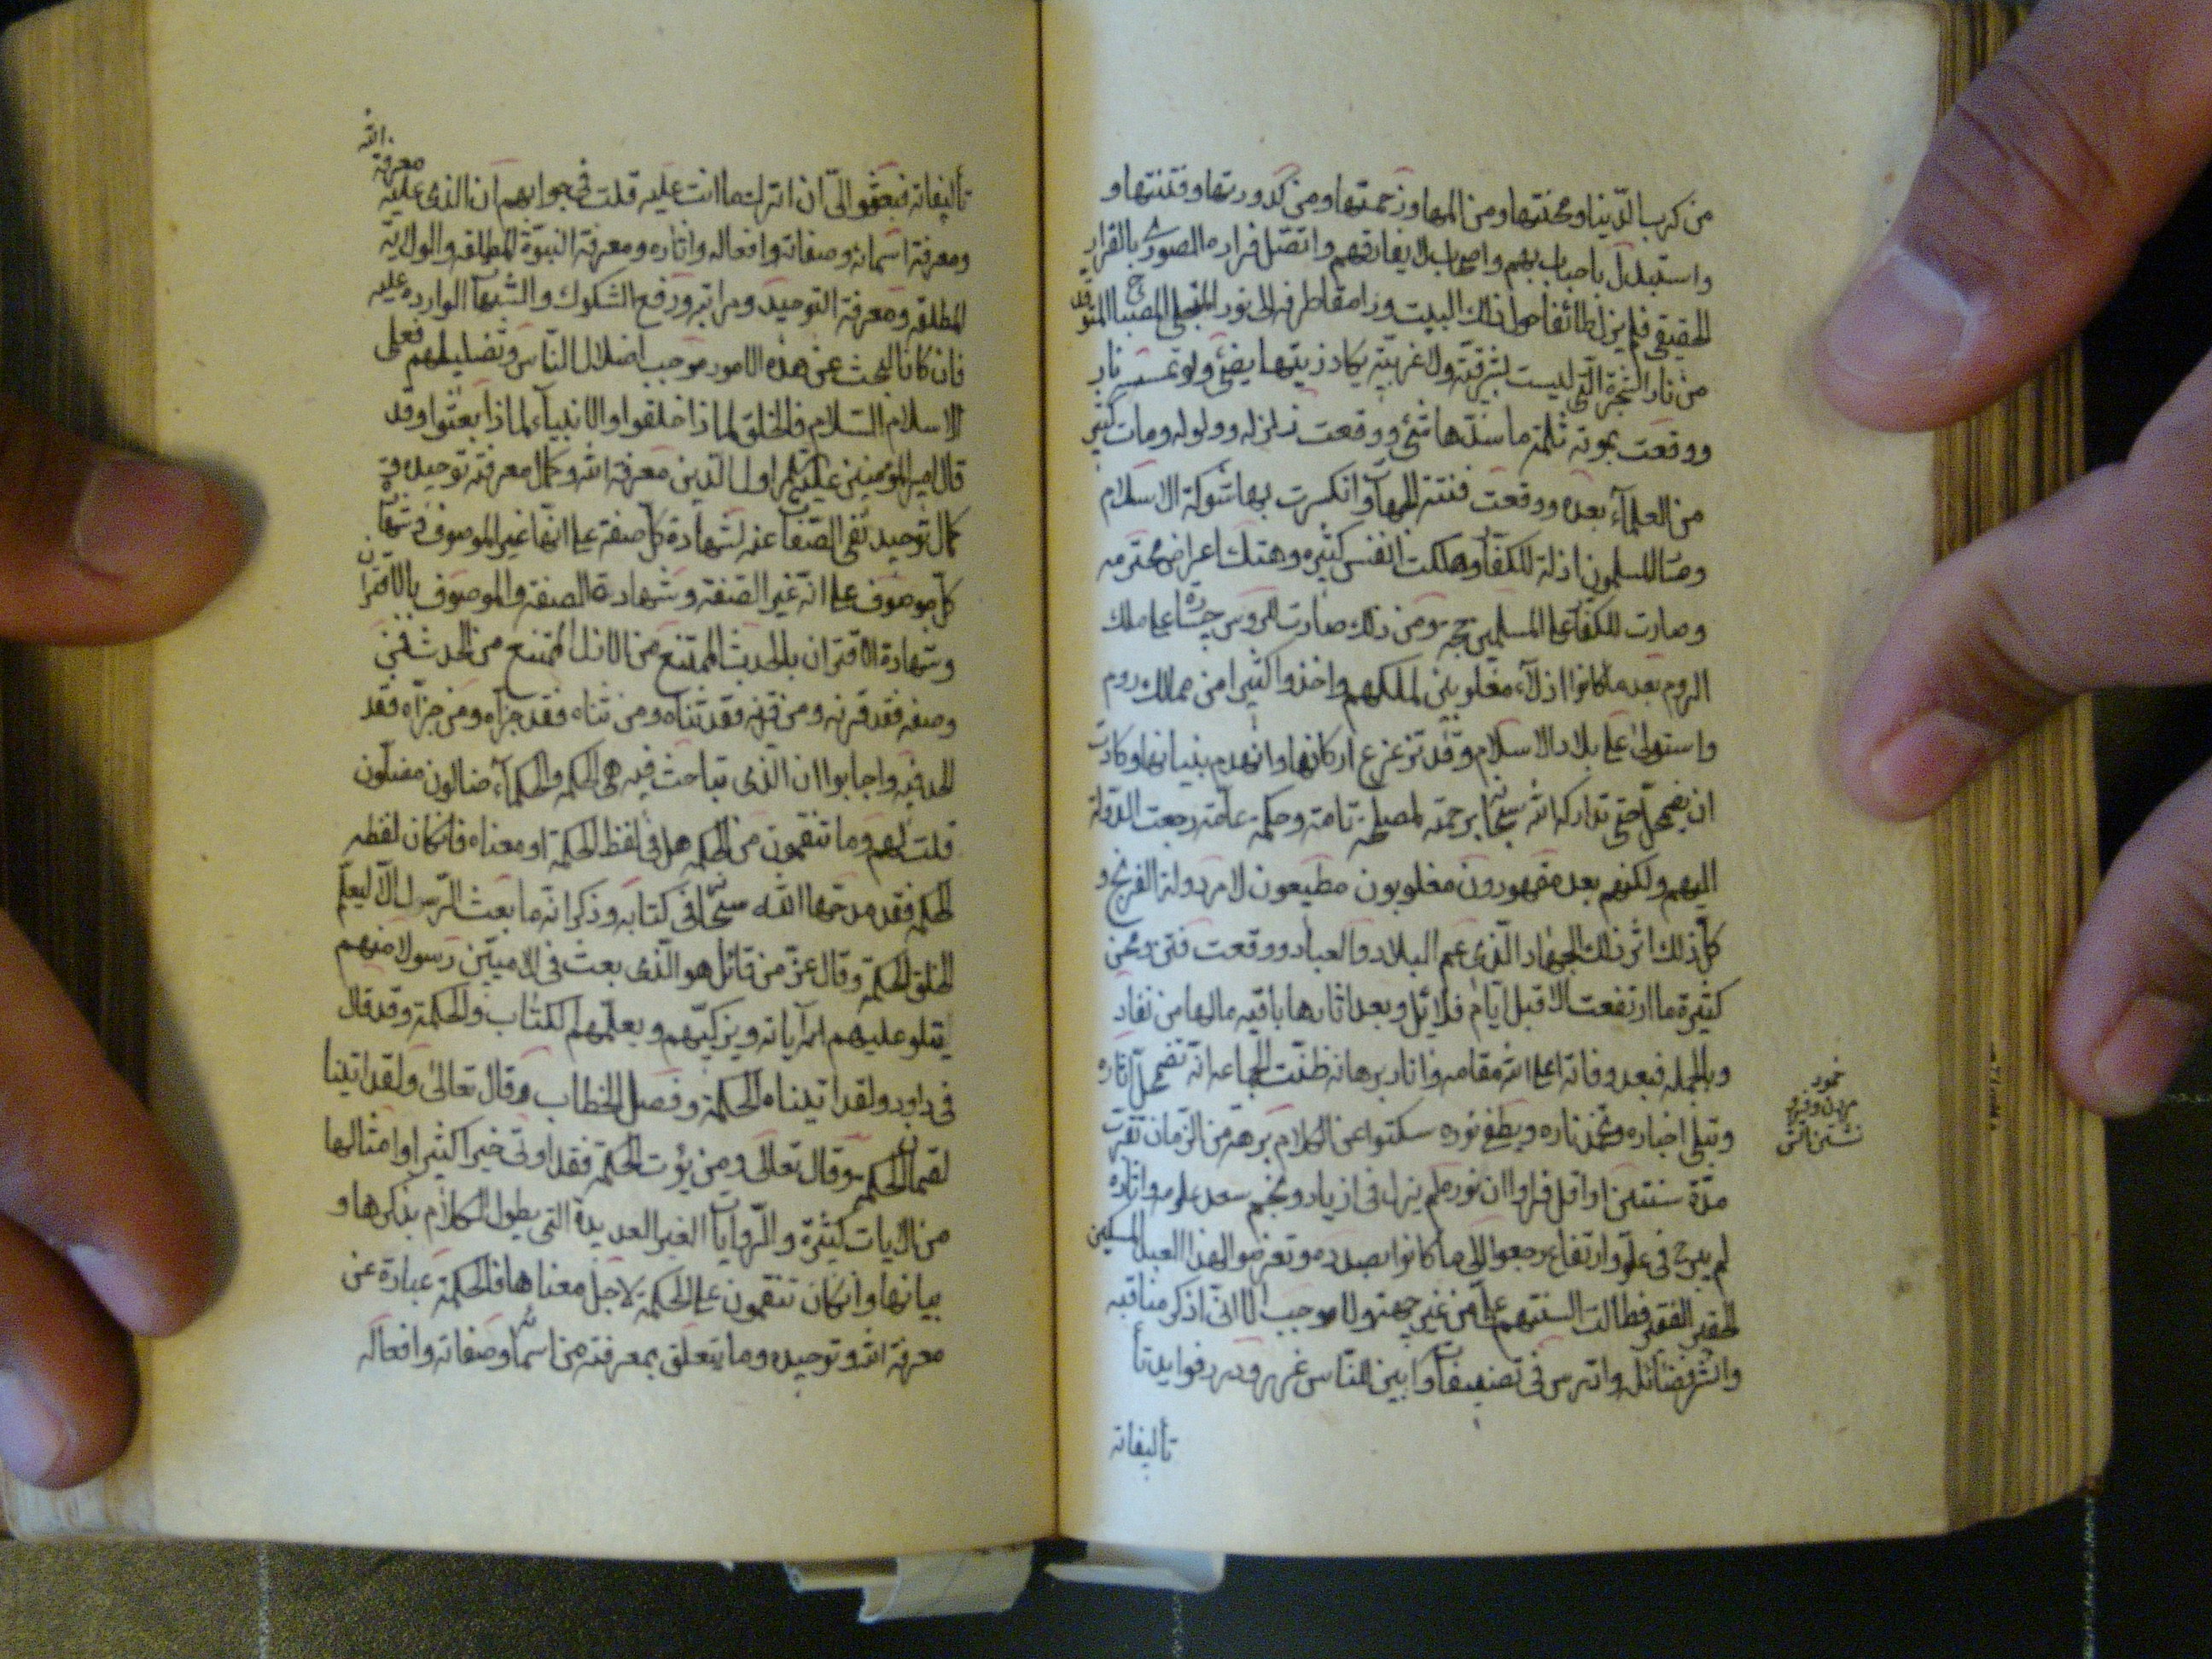 من كرب الدّنيا ومحنتها ومن المها وزحمتها ومن كدورتها وفتنتها و
واستبدل باحباب بهم واصحاب لا يفارقهم واتصل قراره الصورى بالقرار
الحقيقى فلم يزل طائفا حول ذلك البيت ورامقا طرفه الى نور المتجلى المصباح المتوقد
من نار الشجرة التى ليست بشرقيّة ولا غربيّة يكاد زيتها يضئ ولو لم تمسسه نار
ووقعت بموته ثلمة ما سدّها شئ ووقعت زلزله وولوله ومات كثير
من العلمآء بعده ووقعت فتنة وانكسرت بها شوكة الاسلام
وصار المسلمون اذلة للكفّار وهلكت انفس كثيره وهتك اعراض محترمه
وصارت للكفّار على المسلمين حجه ومن ذلك صارت الروس على ملك
الروم بعد ما كانوا اذلآء مغلوبين لملكهم واخذوا كثيرا من ممالك روم
واستولى على بلاد الاسلام وقد تزعزع اركانها وانهدم بنيانها وكادت
ان يضمحل حتى تداركه الله سبحانه برحمته لمصلحة تامة وحكمة عامّة رجعت الدولة
اليهم ولكنهم بعد مقهورون مغلوبون مطيعون لامر دولة الفرنج و
كلّ ذلك اثر ذلك الجهاد الّذى عم البلاد والعباد ووقعت فتن ومحن
كثيرة ما ارتفعت الا قبل ايّام قلائل وبعد اثارها باقيه مالها من نفاد
وبالجمله فبعد وفاته اعلى الله مقامه وانار برهانه ظنّت الجماعه انّه تضمحل آثاره
وتبلى اخباره وتخمد ناره ويطفئ نوره سكتوا عن الكلام برهة من الزّمان تقرب
خمود
مدّة سنتين او اقل فراوا ان نوره لم يزل فى ازدياد ونجم سعد علومه واثاره
لم يبرح فى علوّ وارتفاع رجعوا الى ما كانوا بصدده وتعرضوا لهذا العبد المسكين
الحقير الفقير فطالت السنتهم علىّ من غير جهة ولا موجب الا انّى اذكر مناقبه
وانشر فضائله وادرس فى تصنيفاته وابين للنّاس غرر ودرر فوايد تأ
تأليفاته
تأليفاته فبعثوا الىّ ان اترك ما انت عليه قلت فى جوابهم ان الذى عليه معرفة الله
ومعرفة اسمائه وصفاته وافعاله واثاره ومعرفة النبوّة المطلقه والولاية
المطلقه ومعرفة التوحيد ومراتبه ورفع الشكوك والشبهات الوارده عليه
فان كان البحث عن هذه الامور موجب اضلال النّاس وتضليلهم فعلى
الاسلام السّلام فالخلق لماذا خلقوا والانبيآء لماذا بعثوا وقد
قال امير المؤمنين عليه السلام اول الدّين معرفة الله وكمال معرفته توحيده و
كمال توحيده نفى الصّفات عنه لشهادة كلّ صفة على انّها غير الموصوف وشهادة
كلّ موصوف على انّه غير الصّفة وشهادة الصفة والموصوف بالاقتران
وشهادة الاقتران بالحدث الممتنع من الازل الممتنع من الحدث فمن
وصفه فقد قرنه ومن قرنه فقد ثنّاه ومن ثناه فقد جزّأه ومن جزّأه فقد
الحد فيه واجابوا ان الّذى تباحث فيه هى الحكمه والحكمآء ضالون مضلون
قلت لهم وما تنقمون من الحكمه هل فى لفظ الحكمة او معناه فان كان لفظه
الحكمه فقد مدحها الله سبحانه فى كتابه وذكر انّه ما بعث الرّسول الّا ليعلّم
الخلق الحكمة وقال عزّ من قائل هو الّذى بعث فى الاميّين رسولا منهم
يتلو عليهم آياته ويزكيّهم ويعلّمهم الكتاب والحكمة وقد قال
فى داود ولقد اتيناه الحكمة وفصل الخطاب وقال تعالى ولقد اتينا
لقمان الحكمه وقال تعالى ومن يؤت الحكمة فقد اوتى خيرا كثيرا وامثالها
من الايات كثيرة والرّوايات الغير العديدة التى يطول الكلام بذكرها و
بيانها وان كان تنقمون على الحكمة لاجل معناها فالحكمة عبارة عن
معرفة الله وتوحيده وما يتعلق بمعرفته من اسمائه وصفاته وافعاله